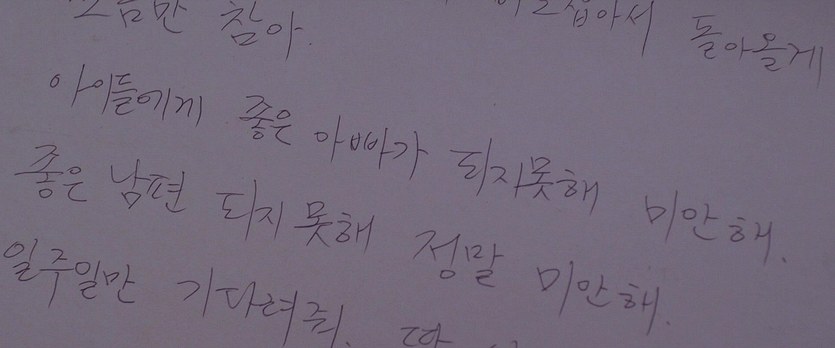 조금만 참아. 돌아올게
아이들에게 좋은 아빠가 되지못해 미안해.
좋은 남편 되지 못해 정말 미안해.
일주일만 기다려줘. 딱